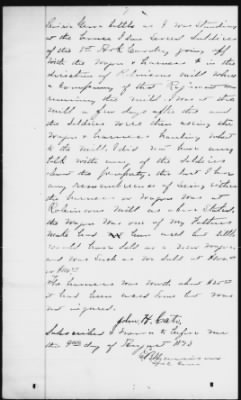 7
as I was standing
at the house I saw several Soldiers
of the 8th N.Y. Cavalry going off
with the Wagon & harness & in the
direction of Robinsons mill where
a Company of that Regiment was
running the mill. I was at the
mill a few days after this and
the soldiers were then using the
Wagon & harness hauling wheat
to the mill. I did not have any
talk with any of the soldiers
about the property. The last I have
any remembrance of seeing either
the harness or Wagon was at
Robinsons Mill as above Stated.
The Wagon was one of my Father's
make had been used but little
would have sold as a new wagon
and was such as we sold at
The harness was worth about $25
it had been used some but was
not injured.
John H. Cates
Subscribed & sworn to before me
the day of August 1873